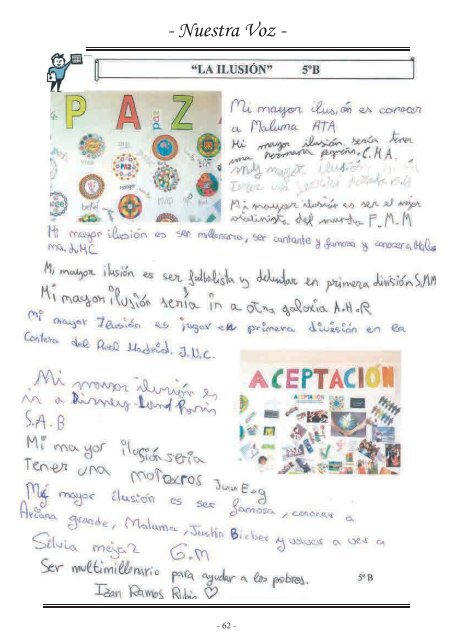 - Nuestra Voz -
“LA ILUSIÓN” 5ºB
PAZ
paz
Mi mayor ilusión es conocer
a Maluma ATA
Mi mayor ilusión sería tener
una hermana pequeña. C.H.A.
muy mayor ilusión
Tener una
Mi mayor ilusión es ser el mejor
del mundo F.M.M
Mi mayor ilusión es ser millonaria, ser cantante y famosa y conocer a Malu
ma. J.M.C.
Mi mayor ilusión es ser futbolista y debutar en primera división S.M.M
Mi mayor ilusión sería in a otra galaxia A.H.R
Mi mayor Ilusión es jugar en primera división en la
Cantera del Real Madrid. J.N.C.
ACEPTACIÓN
ACEPTACIÓN
Mi mayor ilusión es
ir a Disney Land París
S.A.B
Mi mayor ilusión seria
Tener una motocros Juan E.g
Mi mayor ilusión es ser famosa, conocer a
Ariana grande, Maluma, Justin Bieber y volver a ver a
Silvia mejaz G.M
Ser multimillonario para ayudar a los pobres. 5º B
Izan Ramos Rubio
- 62 -